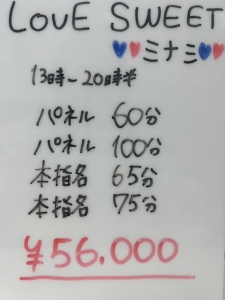 LOVE SWEET
💙❤ミナミ💙❤
13時～20時半
パネル 60分
パネル 100分
本指名 65分
本指名 75分
¥56.000